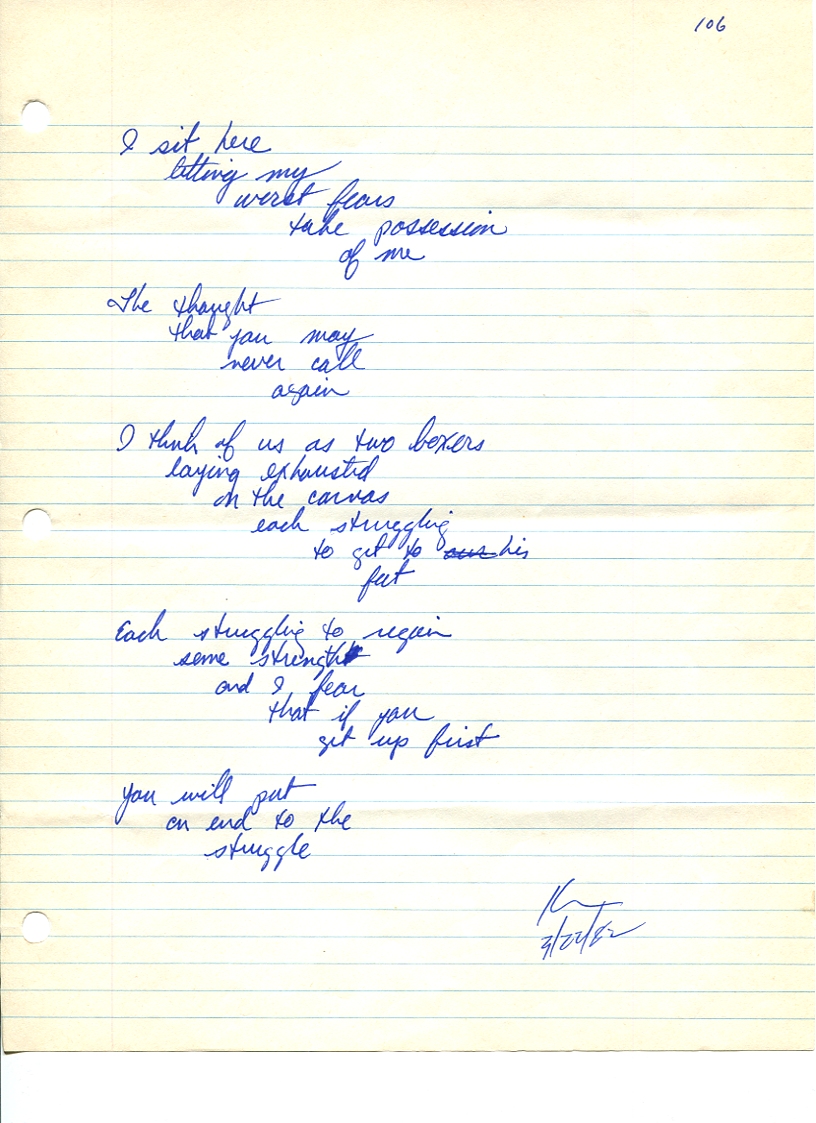 106
I sit here
letting my
worst fears
take possession
of me
The thought
that you may
never call
again
I think of us as two boxers
laying exhausted
on the canvas
each struggling
to get to our his
feet
Each struggling to regain
some strenght
and I fear
that if you
get up first
you will put
an end to the
struggle
3/22/82